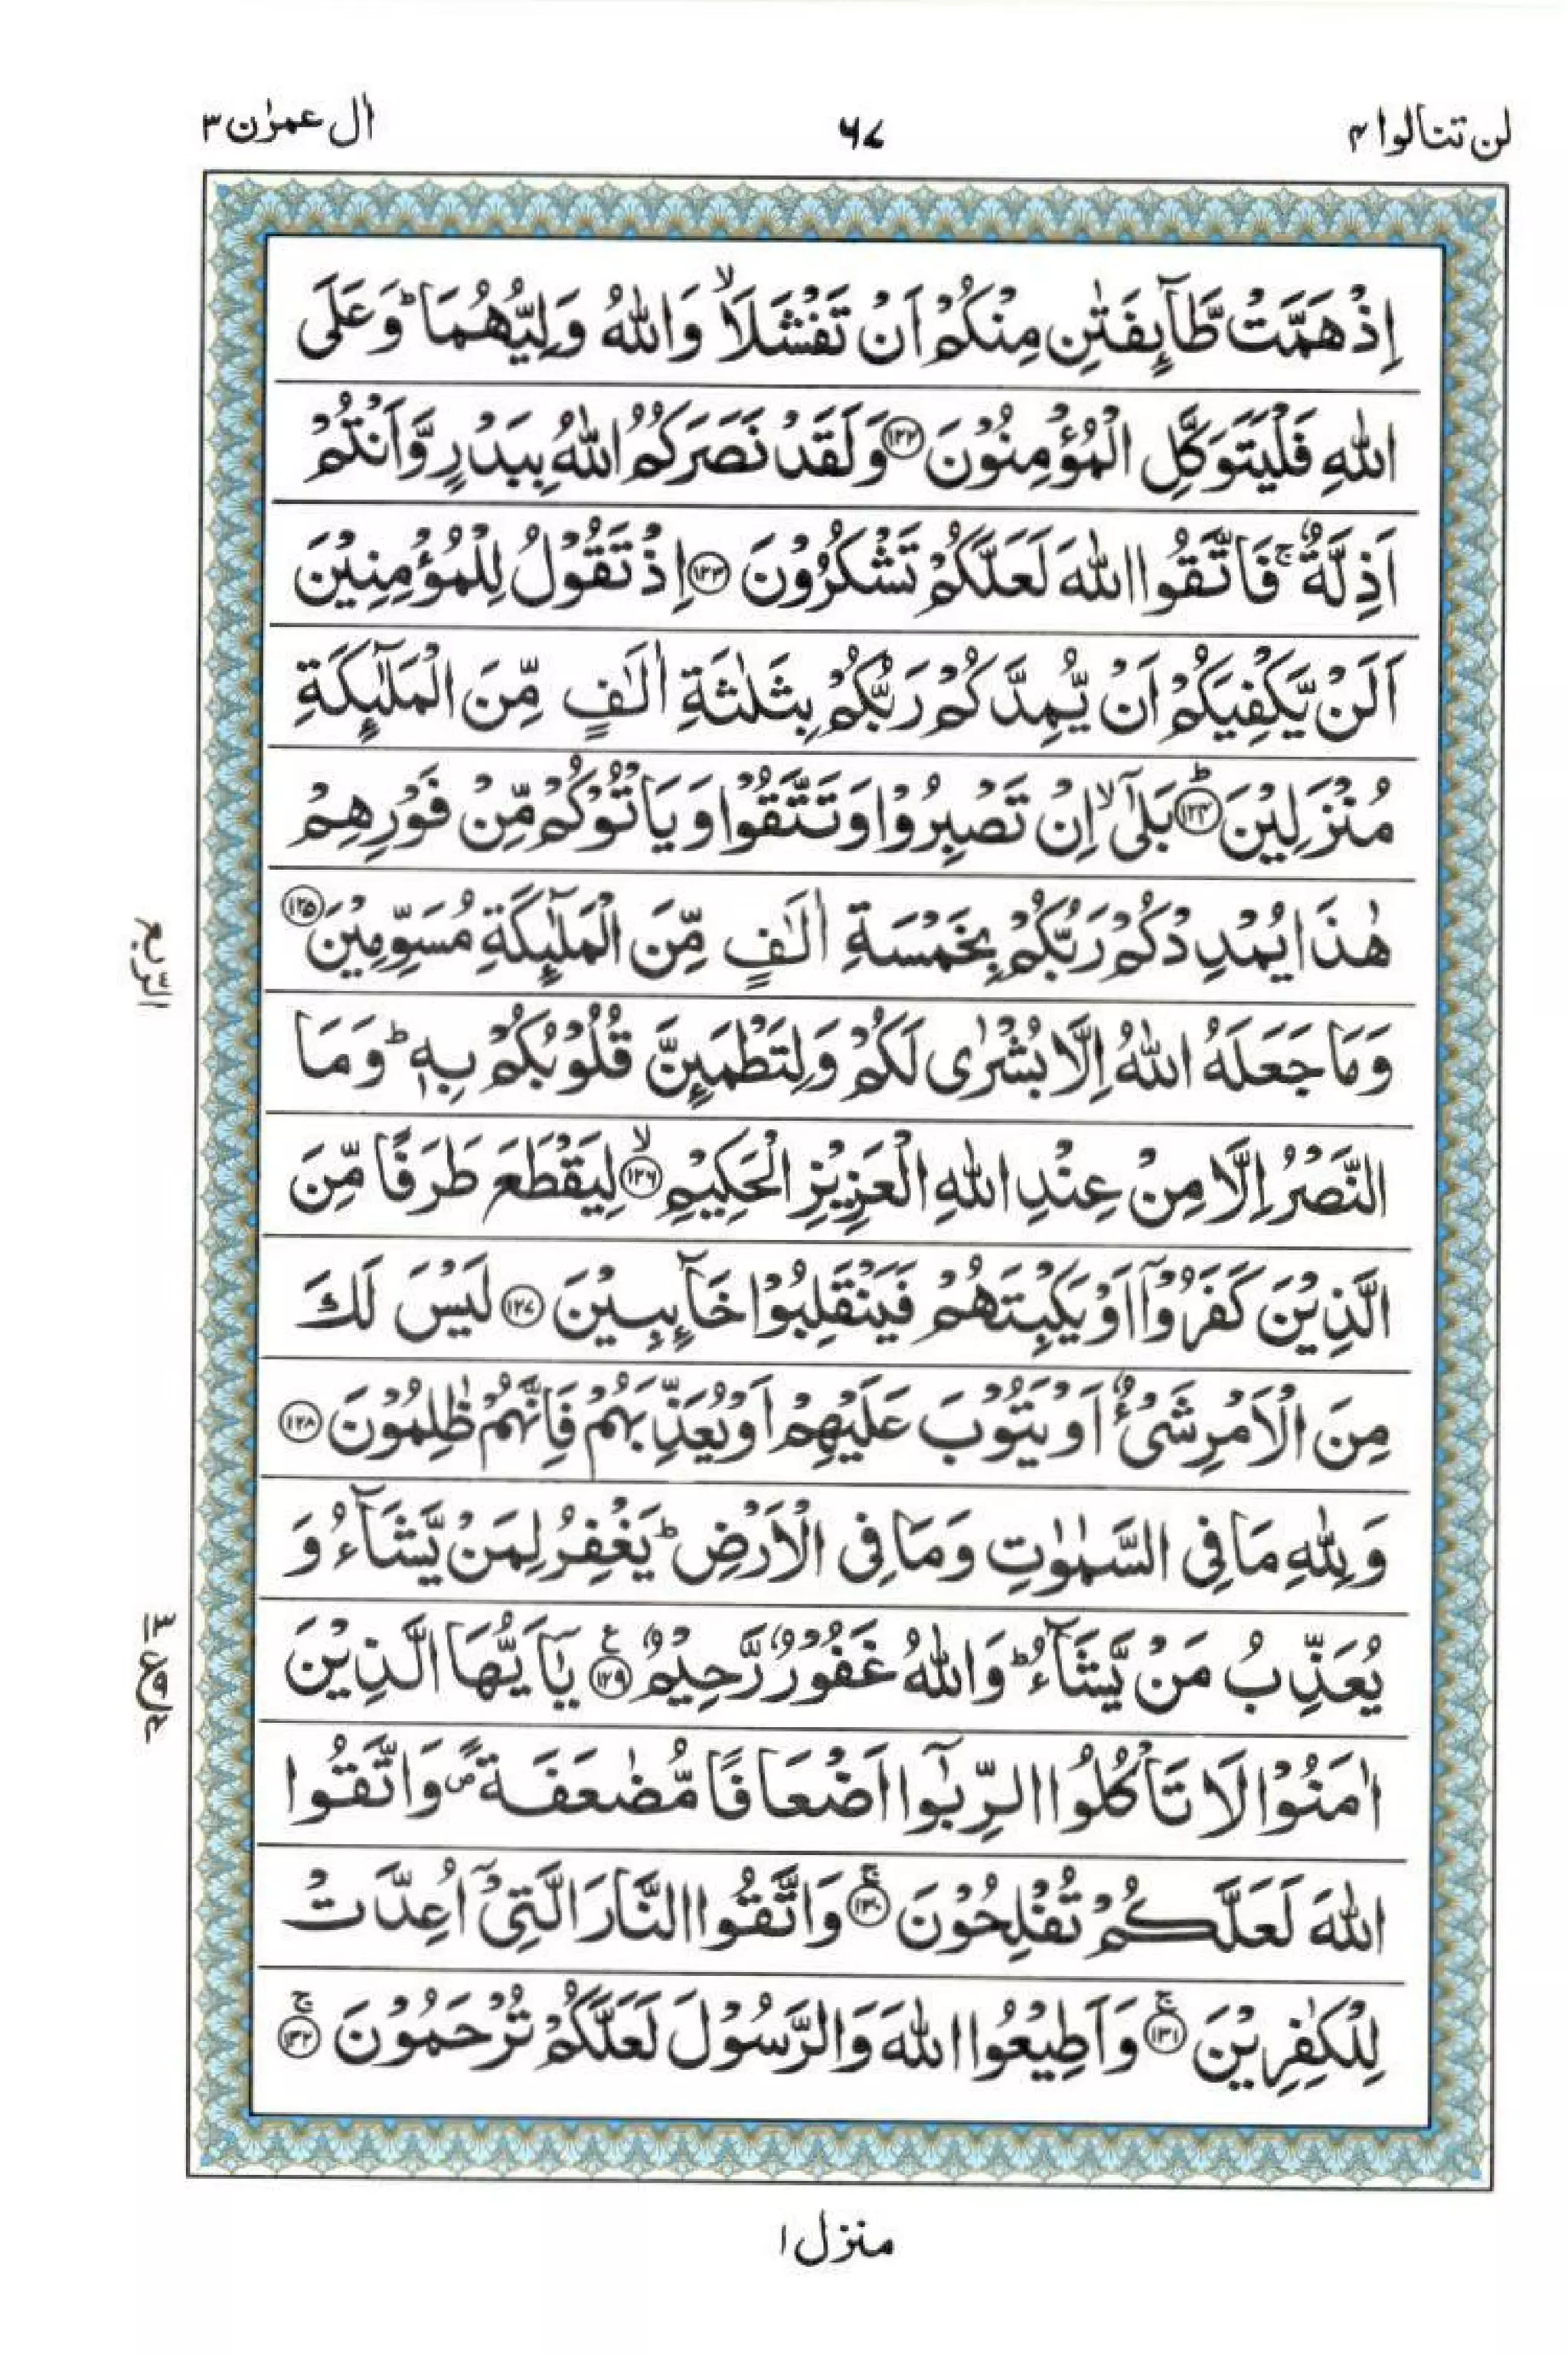 لن تنالوا ۴
۶۷
اٰل عمرٰن ۳
اِذْ هَمَّتْ طَّآىِٕفَتٰنِ مِنْكُمْ اَنْ تَفْشَلَاۙ وَاللّٰهُ وَلِیُّهُمَاؕ وَعَلَی
اللّٰهِ فَلْیَتَوَكَّلِ الْمُؤْمِنُوْنَ ۝۱۲۲ وَلَقَدْ نَصَرَكُمُ اللّٰهُ بِبَدْرٍ وَّاَنْتُمْ
اَذِلَّةٌۚ فَاتَّقُوا اللّٰهَ لَعَلَّكُمْ تَشْكُرُوْنَ ۝۱۲۳ اِذْ تَقُوْلُ لِلْمُؤْمِنِیْنَ
اَلَنْ یَّكْفِیَكُمْ اَنْ یُّمِدَّكُمْ رَبُّكُمْ بِثَلٰثَةِ اٰلٰفٍ مِّنَ الْمَلٰٓىِٕكَةِ
مُنْزَلِیْنَؕ ۝۱۲۴ بَلٰۤیۙ اِنْ تَصْبِرُوْا وَتَتَّقُوْا وَیَاْتُوْكُمْ مِّنْ فَوْرِهِمْ
هٰذَا یُمْدِدْكُمْ رَبُّكُمْ بِخَمْسَةِ اٰلٰفٍ مِّنَ الْمَلٰٓىِٕكَةِ مُسَوِّمِیْنَ ۝۱۲۵
وَمَا جَعَلَهُ اللّٰهُ اِلَّا بُشْرٰی لَكُمْ وَلِتَطْمَىِٕنَّ قُلُوْبُكُمْ بِهٖؕ وَمَا
النَّصْرُ اِلَّا مِنْ عِنْدِ اللّٰهِ الْعَزِیْزِ الْحَكِیْمِۙ ۝۱۲۶ لِیَقْطَعَ طَرَفًا مِّنَ
الَّذِیْنَ كَفَرُوْۤا اَوْ یَكْبِتَهُمْ فَیَنْقَلِبُوْا خَآىِٕبِیْنَ ۝۱۲۷ لَیْسَ لَكَ
مِنَ الْاَمْرِ شَیْءٌ اَوْ یَتُوْبَ عَلَیْهِمْ اَوْ یُعَذِّبَهُمْ فَاِنَّهُمْ ظٰلِمُوْنَ ۝۱۲۸
وَلِلّٰهِ مَا فِی السَّمٰوٰتِ وَمَا فِی الْاَرْضِؕ یَغْفِرُ لِمَنْ یَّشَآءُ وَ
یُعَذِّبُ مَنْ یَّشَآءُؕ وَاللّٰهُ غَفُوْرٌ رَّحِیْمٌ ۝۱۲۹ ع یٰۤاَیُّهَا الَّذِیْنَ
اٰمَنُوْا لَا تَاْكُلُوا الرِّبٰۤوا اَضْعَافًا مُّضٰعَفَةً۪ وَاتَّقُوا
اللّٰهَ لَعَلَّكُمْ تُفْلِحُوْنَۚ ۝۱۳۰ وَاتَّقُوا النَّارَ الَّتِیْۤ اُعِدَّتْ
لِلْكٰفِرِیْنَۚ ۝۱۳۱ وَاَطِیْعُوا اللّٰهَ وَالرَّسُوْلَ لَعَلَّكُمْ تُرْحَمُوْنَۚ ۝۱۳۲
الرّبع
منزل ۱